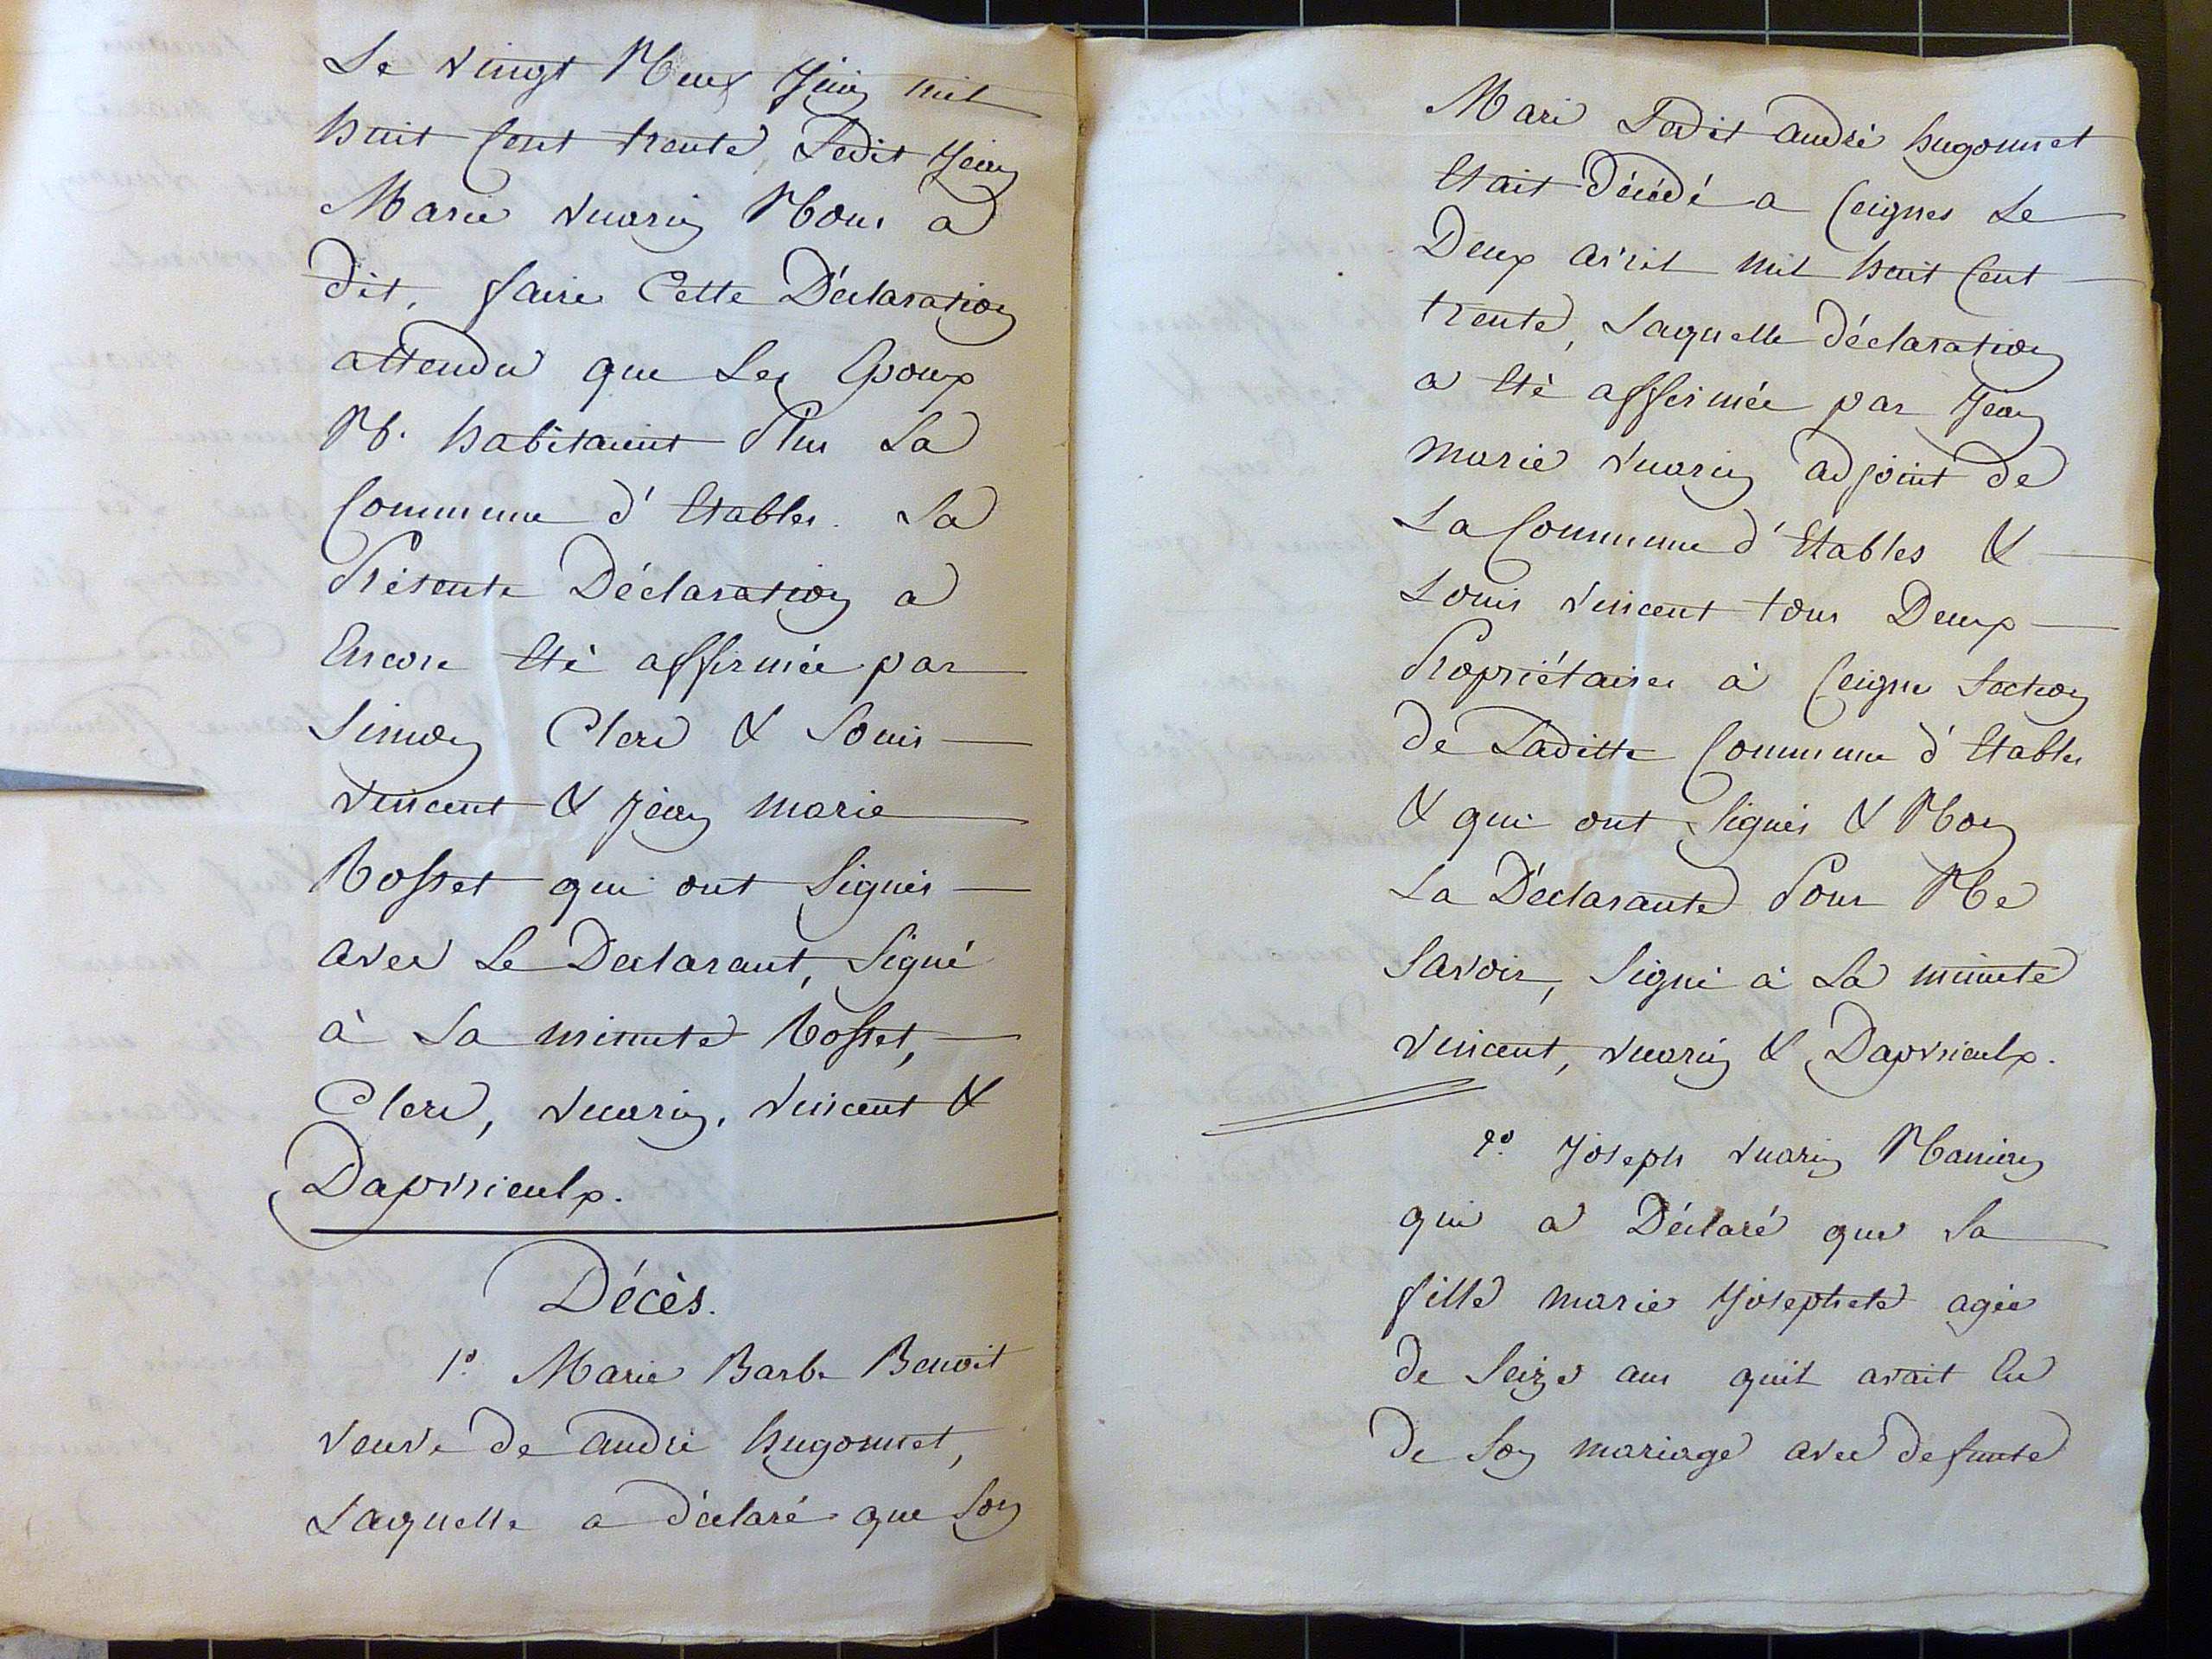 Le vingt Neuf Juin mil
huit Cent trente, Ledit Jean
Marie Vuarin Nous a
dit, faire Cette Déclaration
attendu que Les Epoux
N'habitaient Plus La
Commune d'Etables. La
Présente Déclaration a
Encore été affirmée par
Simon Clerc & Louis
Vincent & Jean marie
Rosset qui ont Signés
avec Le Declarant, Signé
à La minute Rosset,
Clerc, Vuarin, Vincent &
Dapvrieulx.
Décès.
1º Marie Barbe Benoit
veuve de andré hugonnet,
Laquelle a déclaré que Son
Mari Ledit andré hugonnet
Etait Décédé a Ceignes Le
Deux avril mil huit Cent
trente, Laquelle déclaration
a Eté affirmée par Jean
marie Vuarin adjoint de
La Commune d'Etables &
Louis Vincent tous Deux
Propriétaires à Ceigne Section
de Laditte Commune d'Etables
& qui ont Signés & Non
La Déclarante Pour Ne
Savoir, Signé à La minute
Vincent, Vuarin & Dapvrieulx.
2º Joseph Vuarin
qui a Déclaré que Sa
fille marie Josephete agée
de Seize ans quil avait Eu
de Son mariage avec defunte